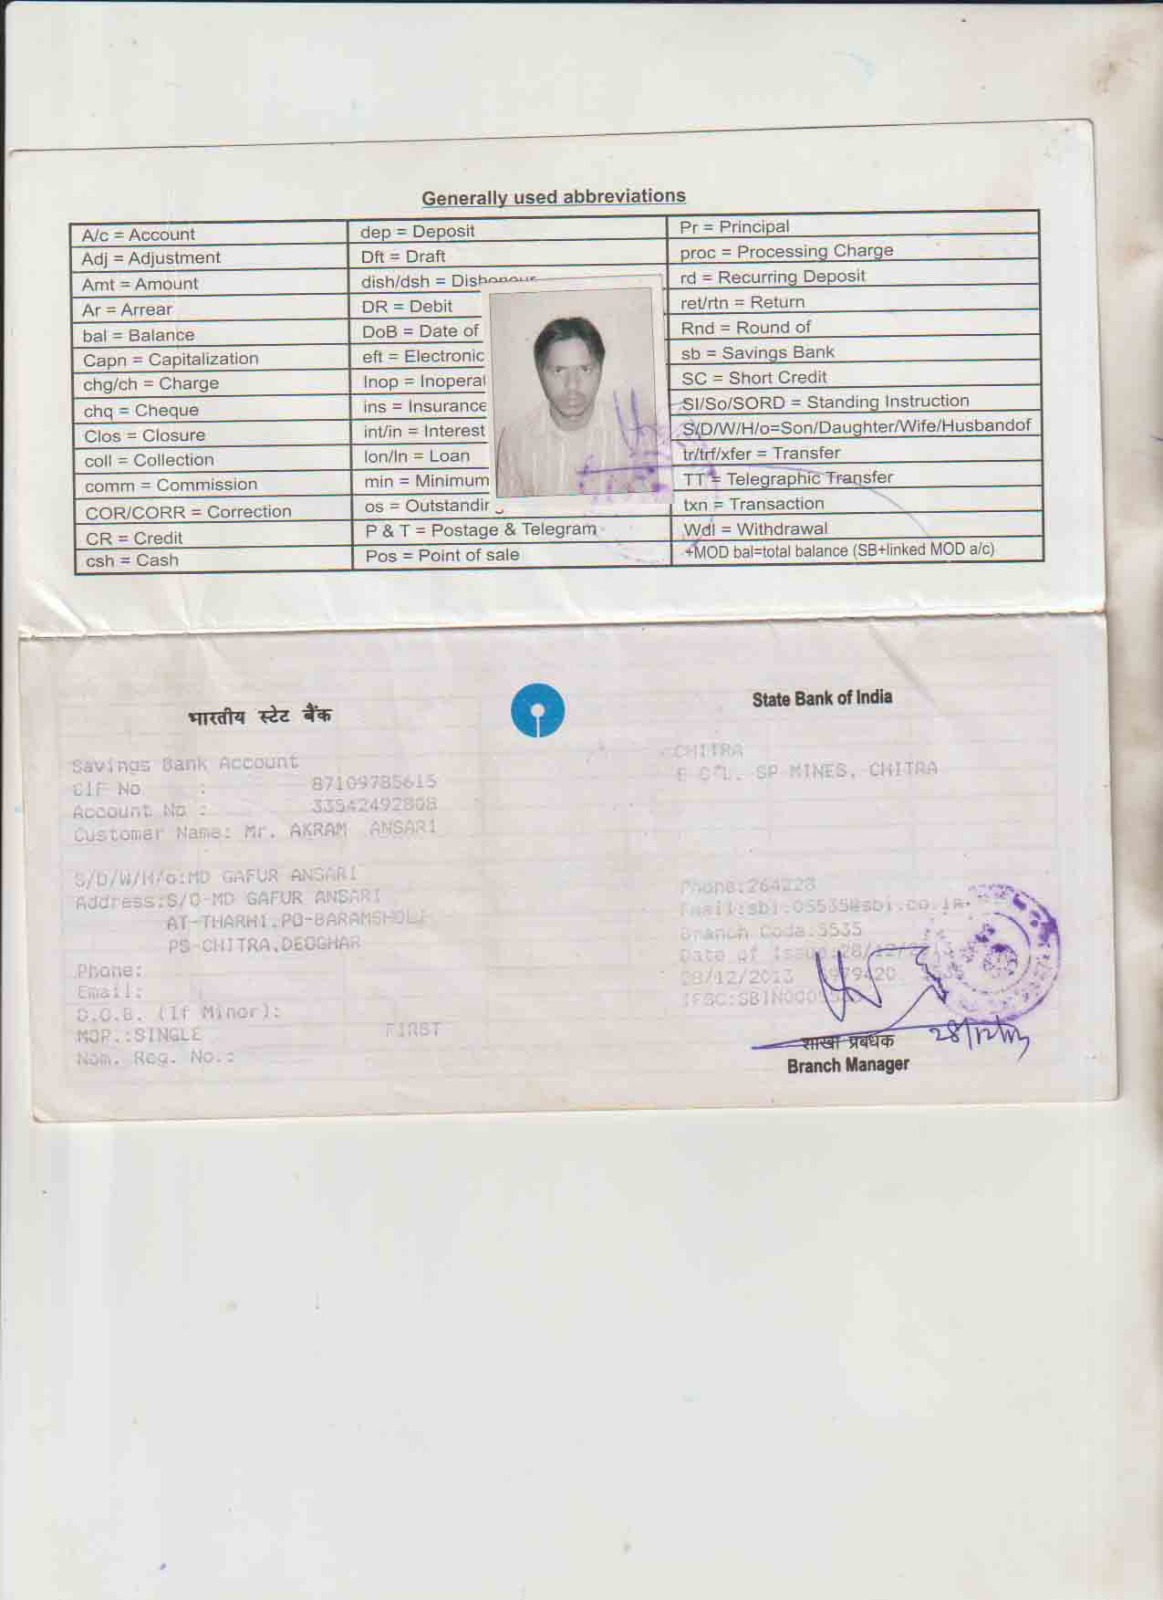 Generally used abbreviations
A/c = Account
Adj = Adjustment
Amt = Amount
Ar = Arrear
bal = Balance
Capn = Capitalization
chg/ch = Charge
chq = Cheque
Clos = Closure
coll = Collection
comm = Commission
COR/CORR = Correction
CR = Credit
csh = Cash
dep = Deposit
Dft = Draft
dish/dsh = Dishonour
DR = Debit
DoB = Date of
eft = Electronic
Inop =
ins = Insurance
int/in = Interest
lon/ln = Loan
min = Minimum
os =
P & T = Postage & Telegram
Pos = Point of sale
Pr = Principal
proc = Processing Charge
rd = Recurring Deposit
ret/rtn = Return
Rnd = Round of
sb = Savings Bank
SC = Short Credit
SI/So/SORD = Standing Instruction
S/D/W/H/o=Son/Daughter/Wife/Husbandof
tr/trf/xfer = Transfer
TT = Telegraphic Transfer
txn = Transaction
Wdl = Withdrawal
+MOD bal=total balance (SB+linked MOD a/c)
भारतीय स्टेट बैंक
State Bank of India
Savings Bank Account
CIF No : 87109785615
Account No : 33542492808
Customer Name: Mr. AKRAM ANSARI
S/D/W/H/o:MD GAFUR ANSARI
Address:S/O-MD GAFUR ANSARI
AT-THARHI,PO-
PS-CHITRA,DEOGHAR
Phone:
Email:
D.O.B. (If Minor):
MOP.:SINGLE FIRST
Nom. Reg. No.:
CHITRA
SP MINES, CHITRA
Phone:264228
Email:sbi.05535@sbi.co.in
Branch Code:5535
Date of Issue:28/12/
28/12/2013
शाखा प्रबंधक
Branch Manager
28/12/13